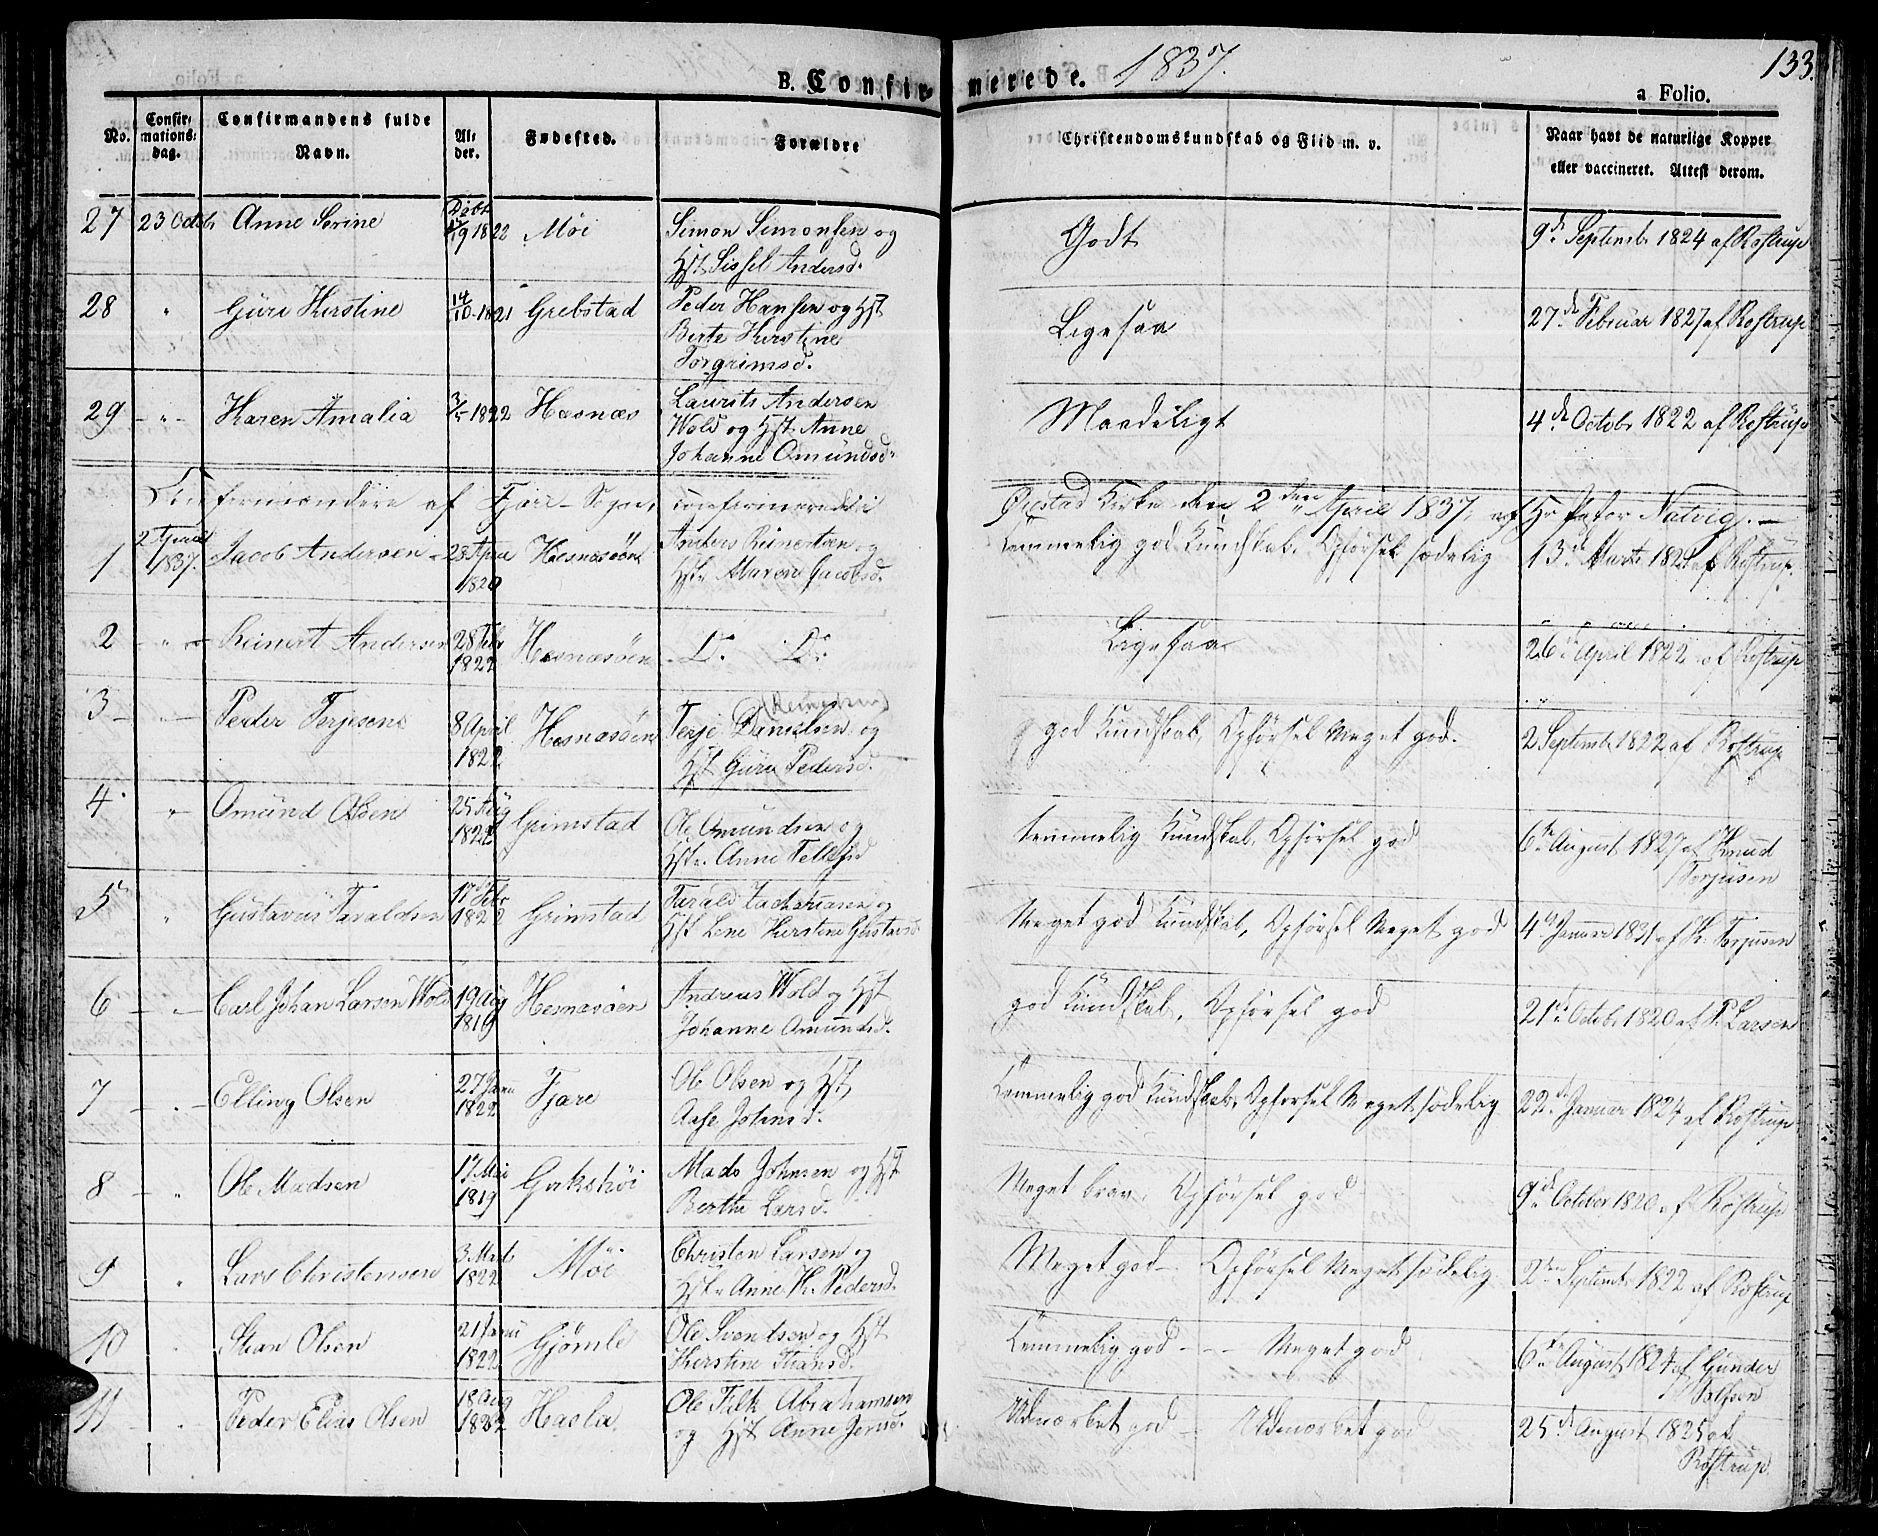 133.
B. Confirmerede. 1837.
a Folio.
No.
Confirmations-dag.
Confirmandens fulde Navn.
Alder.
Fødested.
Forældre
Christendomskundskab og Flid m. v.
Naar havt de naturlige Kopper eller vaccineret. Attest derom.
27 23 Octob Anne Serine Døbt 1822 Möi Simon Simonsen og Hst Sissel Andersd. Godt 9de Septembr 1824 af Rostrup
28 " Guri Kirstine 14/10 1821 Grebstad Peder Hansen og Hst Berte Kirstine Torgrimsd. Ligesaa 27de Februar 1827 af Rostrup
29 - " - Karen Amalia 1822 Hesnæs Laurits Andersen Wold og Hst Anne Johanne Omundsd. Maadeligt 4de Octobr 1822 af Rostrup
af Fjære-Sogn, confirmerede i Øiestad Kirke den 2den April 1837, af Hr Pastor Natvig. -
1 2 April 1837. Jacob Andersen - 23 April 1820 Hesnæsöen Anders Reinertsen og Hst. Maren Jacobsd. Temmelig god Kundskab. Opførsel sædelig 13de Marts af Rostrup.
2 - " - Reinert Andersen 28 Febr 1822 Hesnæsöen D. D. Ligesaa 26de April 1822 af Rostrup
3 - " - Peder Terjesen 8 April 1822 Hesnæsöen Terje Danielsen og Hst Guri Pedersd. god Kundskab, Opførsel Meget god. 2 Septembr 1822 af Rostrup
4 " Omund Olsen 25 Aug 1822 Grimstad Ole Omundsen og Hst. Anne Tellefsd. temmelig Kundskab. Opførsel god 6te August 1827 af Knud Torjusen
5 " Gustavus Taraldsen 17 Febr 1822 Grimstad Tarald Zachariasen og Hst Lene Kirstine Gustavsd. Meget god Kundskab, Opførsel Meget god 4de Januar 1831 af K. Torjusen
6 - " - Carl Johan Larsen Wold 19 Aug 1819 Hesnæsöen Andreas Wold og Hst Johanne Omundsd. god Kundskab, Opførsel god 21de Octobr 1820 af P. Larsen
7 - " - Elling Olsen 27 Janu 1822 Fjære Ole Olsen og Hst Aase Johnsd. Temmelig god Kundskab, Opførsel Meget sædelig 22de Januar 1824 af Rostrup
8 - " Ole Madsen 17 Mai 1819 Mads Johnsen og Hst Berthe Larsd. Meget brav. Opførsel god 9de October 1820 af Rostrup
9 " Lars Christensen 3 Marts 1822 Möi Christen Larsen og Hst. Anne K. Pedersd. Meget god - Opførsel Meget sædelig 2den Septembr 1822 af Rostrup
10 " Stian Olsen 21 Juni 1822 Gjömle Ole Svendsen og Hst Kirstine Stiansd. Temmelig god - - - Meget god 6te August 1824 af Gunder
11 " Peder Elias Olsen 18 Aug 1822 Hasla. Ole Falk Abrahamsen og Hst Anne Jensd. Udmærket god - Udmærket god 25de August 1825 af Rostrup